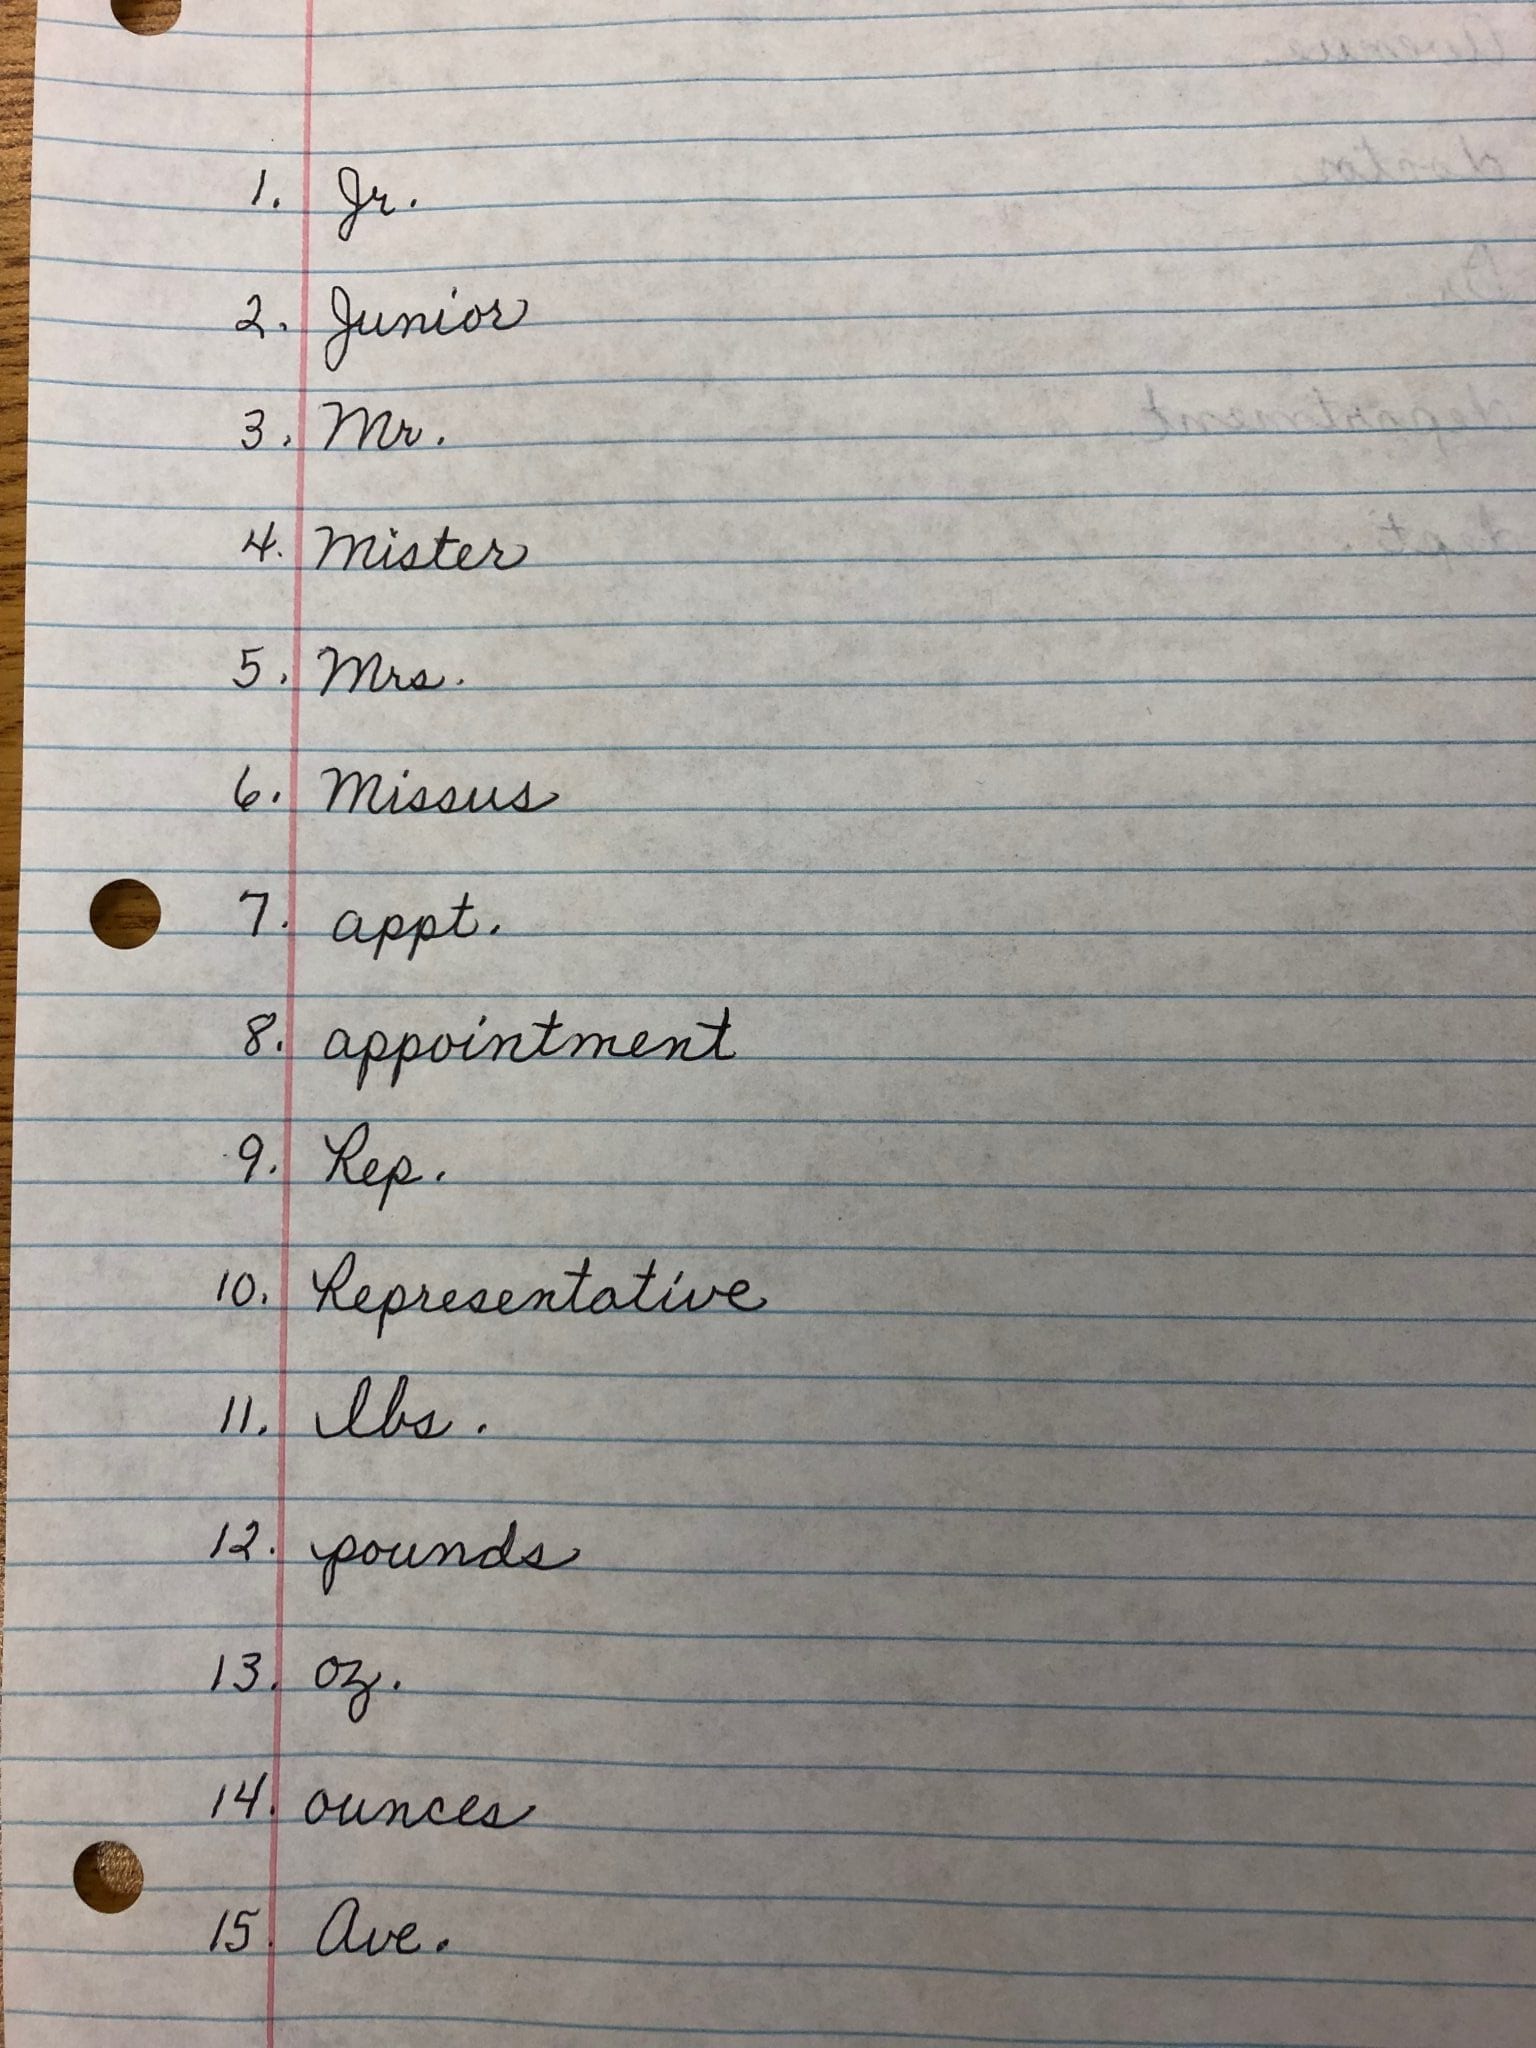 1. Jr.
2. Junior
3. Mr.
4. Mister
5. Mrs.
6. Missus
7. appt.
8. appointment
9. Rep.
10. Representative
11. lbs.
12. pounds
13. oz.
14. ounces
15. Ave.